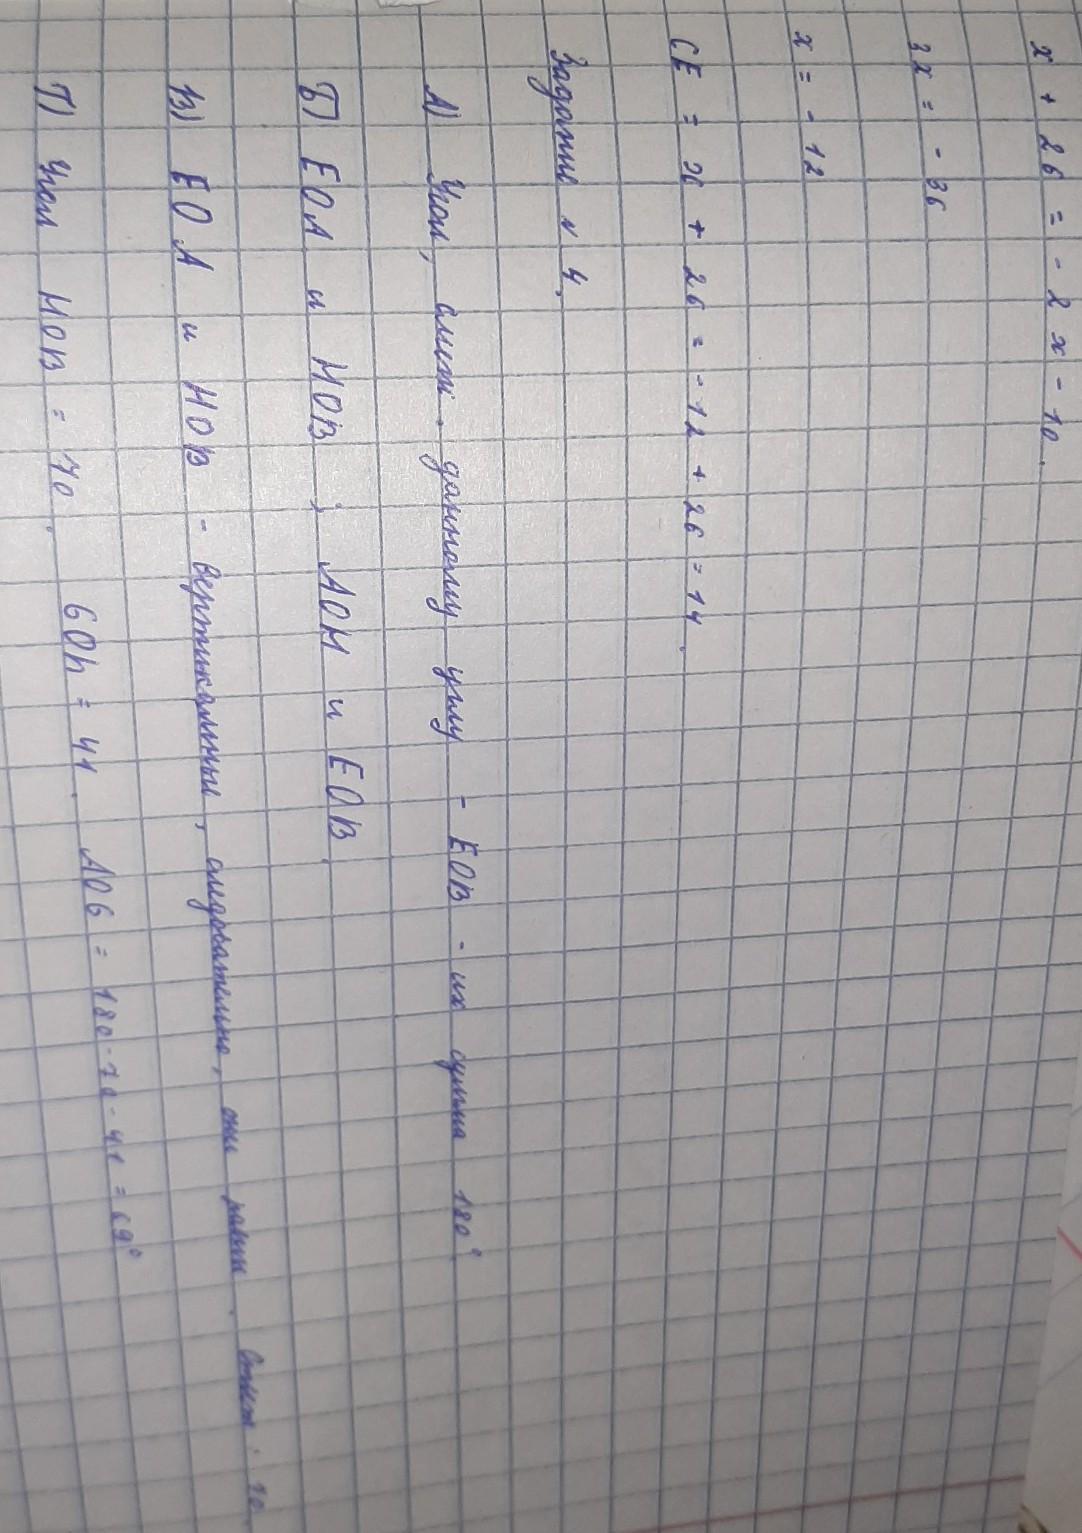 x + 26 = - 2x - 10.
3x = - 36
x = - 12
CE = x + 26 = - 12 + 26 = 14.
Задание № 4.
А) Угол, смеж. данному углу - EOB - их сумма 180°
Б) EOA и HOB ; AOH и EOB
В) EOA и HOB - вертикальные, следовательно, они равны. Ответ: 70.
Г) Угол HOB = 70. GOh = 41. AOG = 180 - 70 - 41 = 69°